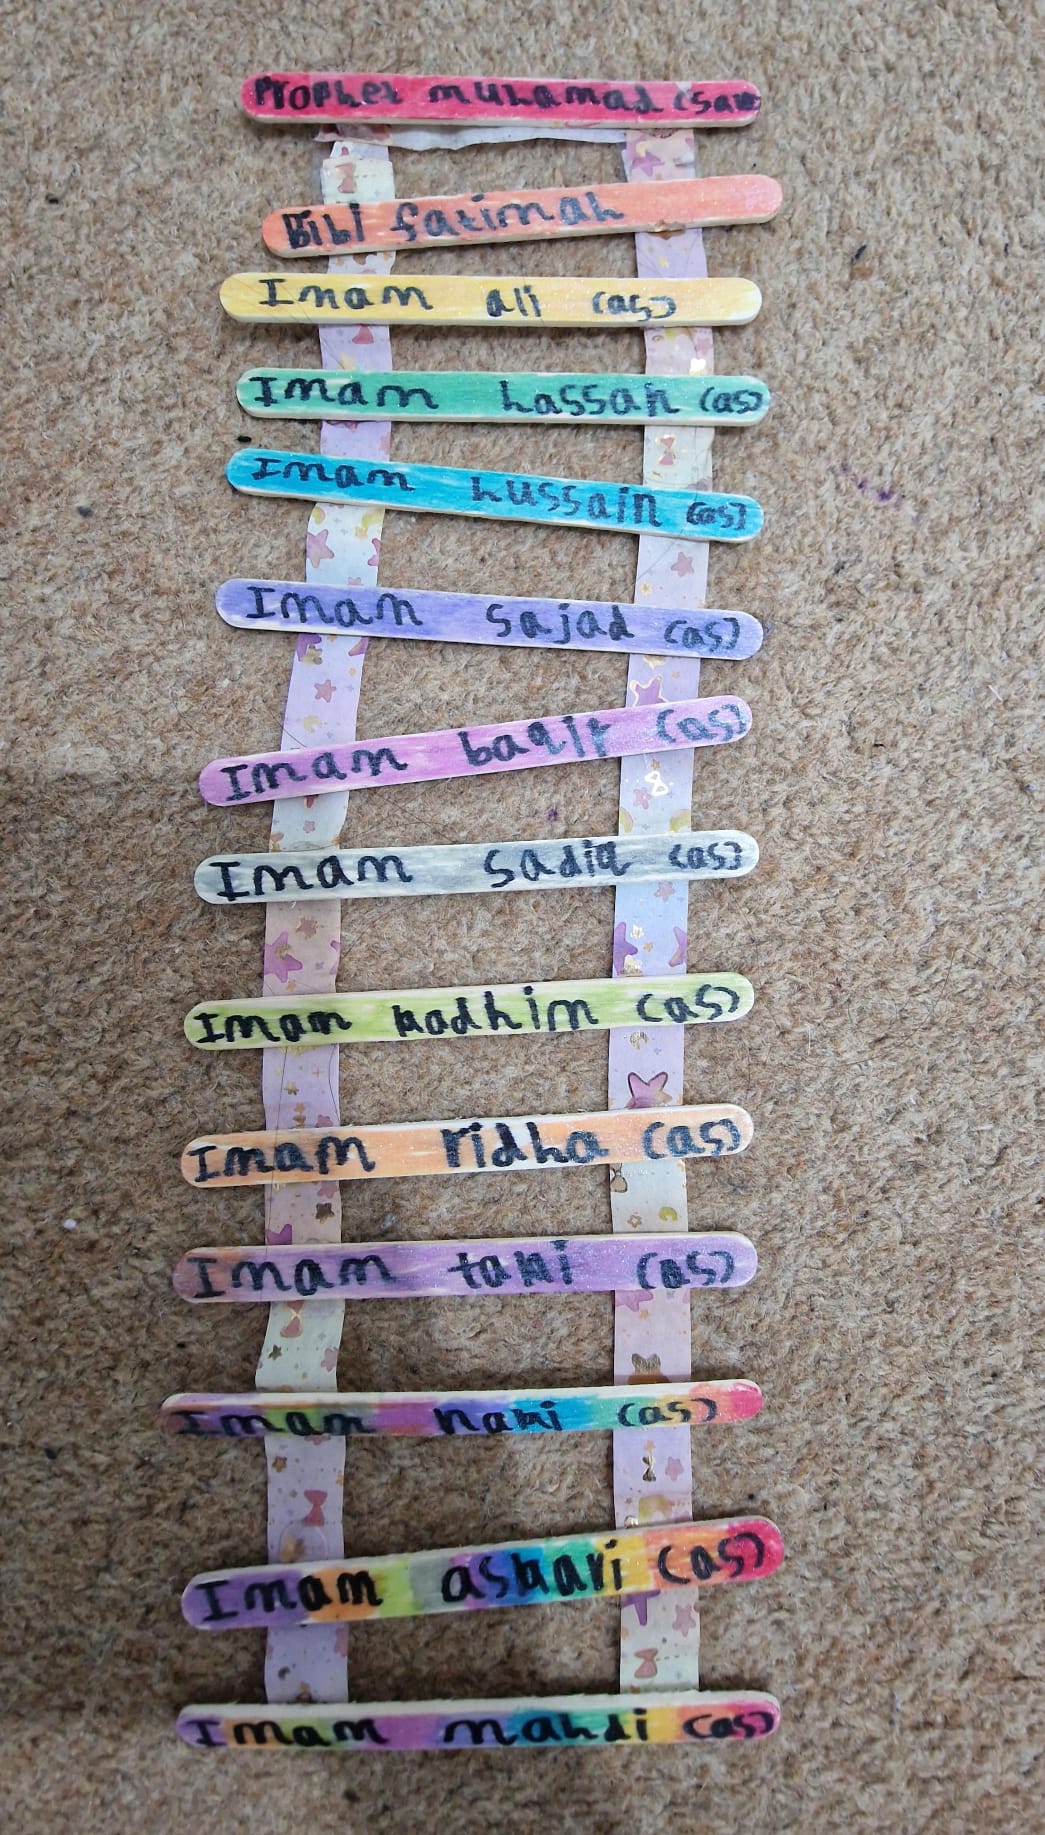 Prophet muhamad (saw)
Bibi fatimah
Imam ali (as)
Imam hassan (as)
Imam hussain (as)
Imam sajad (as)
Imam baqir (as)
Imam sadiq (as)
Imam kadhim (as)
Imam ridha (as)
Imam taki (as)
Imam naki (as)
Imam askari (as)
Imam mahdi (as)